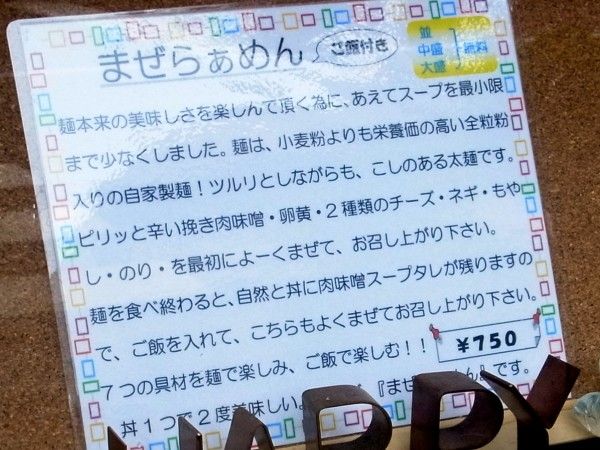 まぜらぁめん
ご飯付き
並
中盛
大盛
無料
麺本来の美味しさを楽しんで頂く為に、あえてスープを最小限
まで少なくしました。麺は、小麦粉よりも栄養価の高い全粒粉
入りの自家製麺！ツルリとしながらも、こしのある太麺です。
ピリッと辛い挽き肉味噌・卵黄・2種類のチーズ・ネギ・もや
し・のり・を最初によーくまぜて、お召し上がり下さい。
麺を食べ終わると、自然と丼に肉味噌スープタレが残りますの
で、ご飯を入れて、こちらもよくまぜてお召し上がり下さい。
7つの具材を麺で楽しみ、ご飯で楽しむ！！
¥750
丼1つで2度美味しい
『まぜ
めん』です。
HAPPY